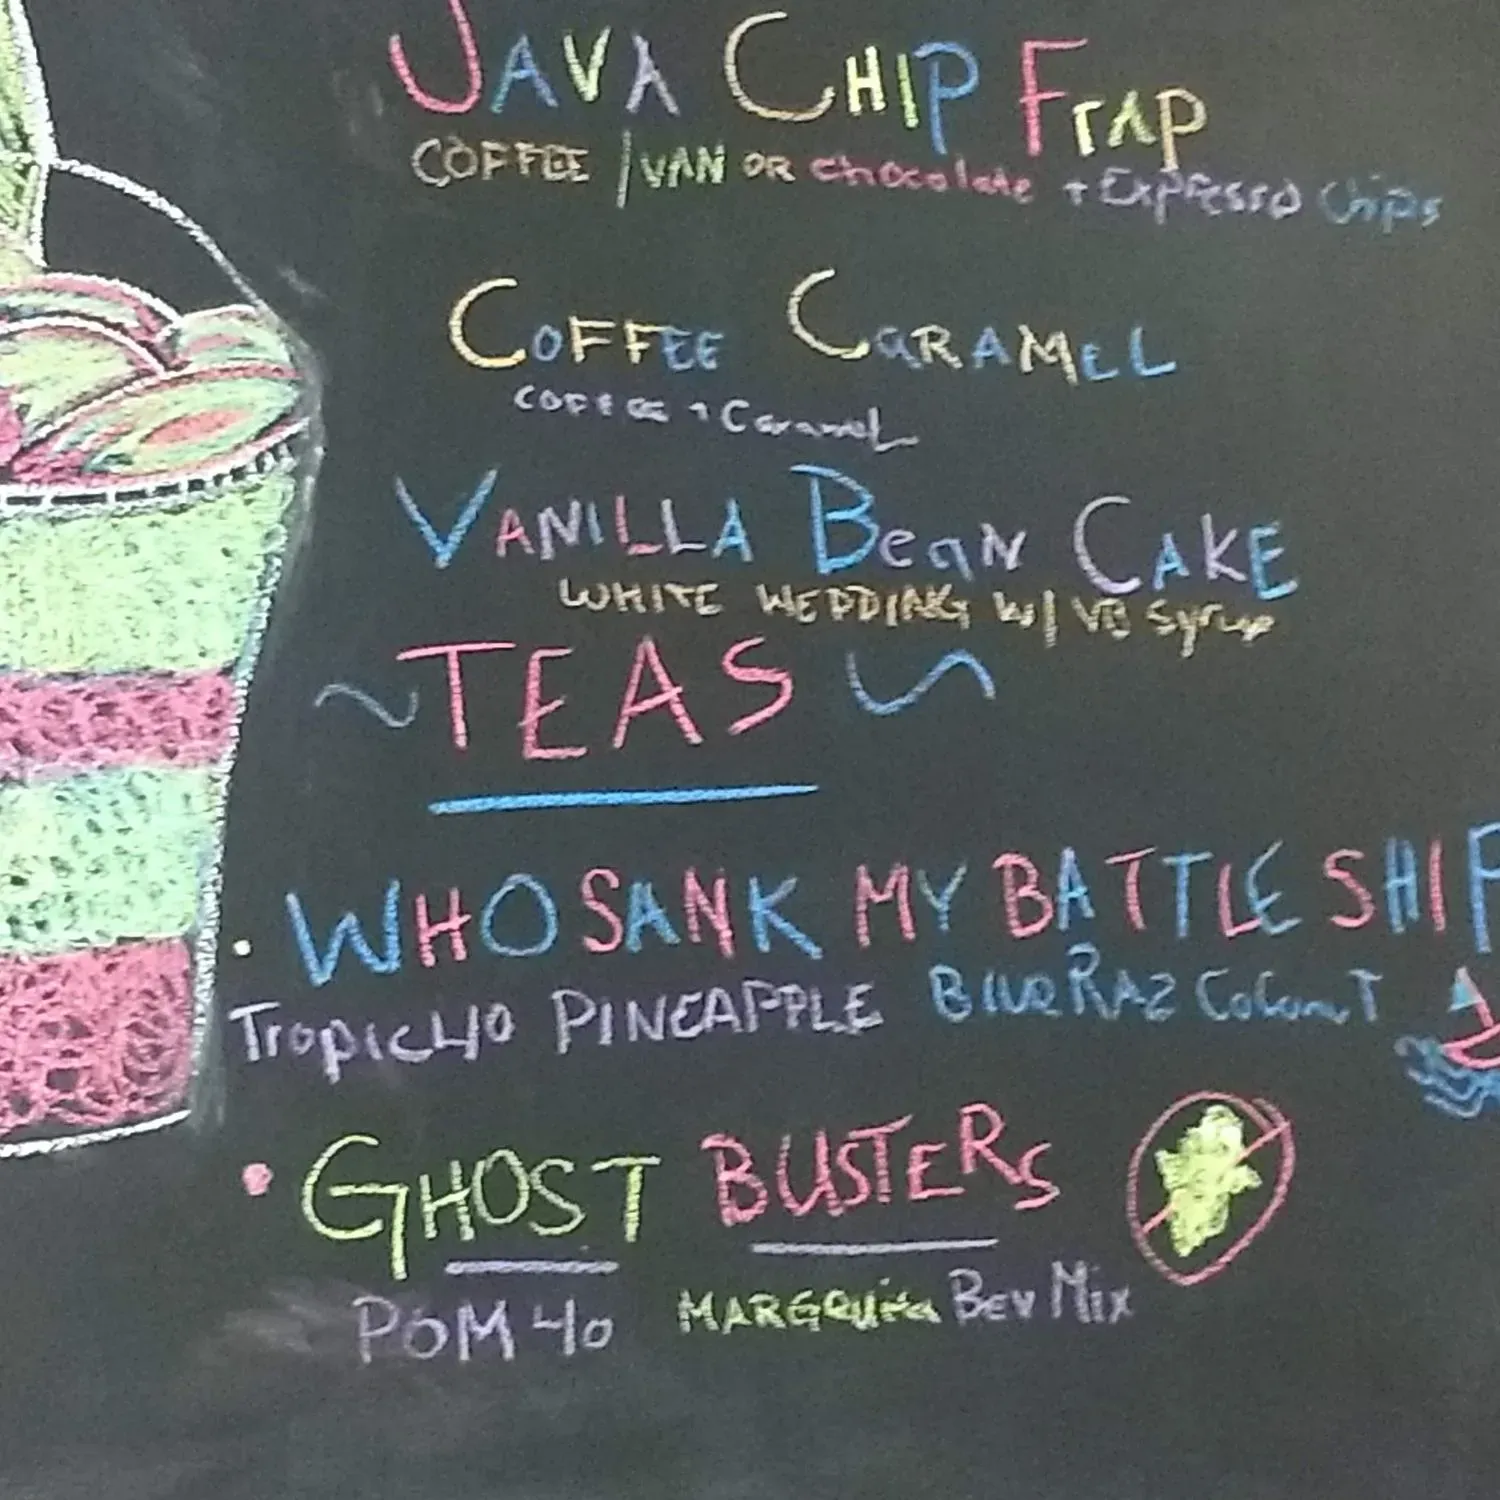 JAVA CHIP Frap
COFFEE / VAN OR chocolate + Expresso Chips
COFFEE CaRAMEL
COFFEE + CaramеL
VANILLA BeaN CAKE
WHITE WEDDING W/ VB Syrup
~TEAS~
• WHO SANK MY BATTLE SHIP
Tropic 40 PINEAPPLE BlueRAZ CoconuT
• GHOST BUSTERS
POM 40 MARGARita Bev Mix